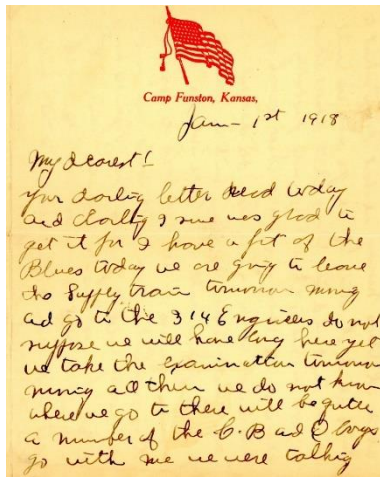 Camp Funston, Kansas,
Jan - 1st 1918
My dearest!
Your darling letter recd today
and darling I sure was glad to
get it for I have a fit of the
Blues today we are going to leave
the Supply train tomorrow morng
ad go to the 314 Engineers do not
suppose we will have long here yet
we take the examination tomorrow
morng all then we do not know
where we go to there will be quite
a number of the C. B ad Q boys
go with me we were talking